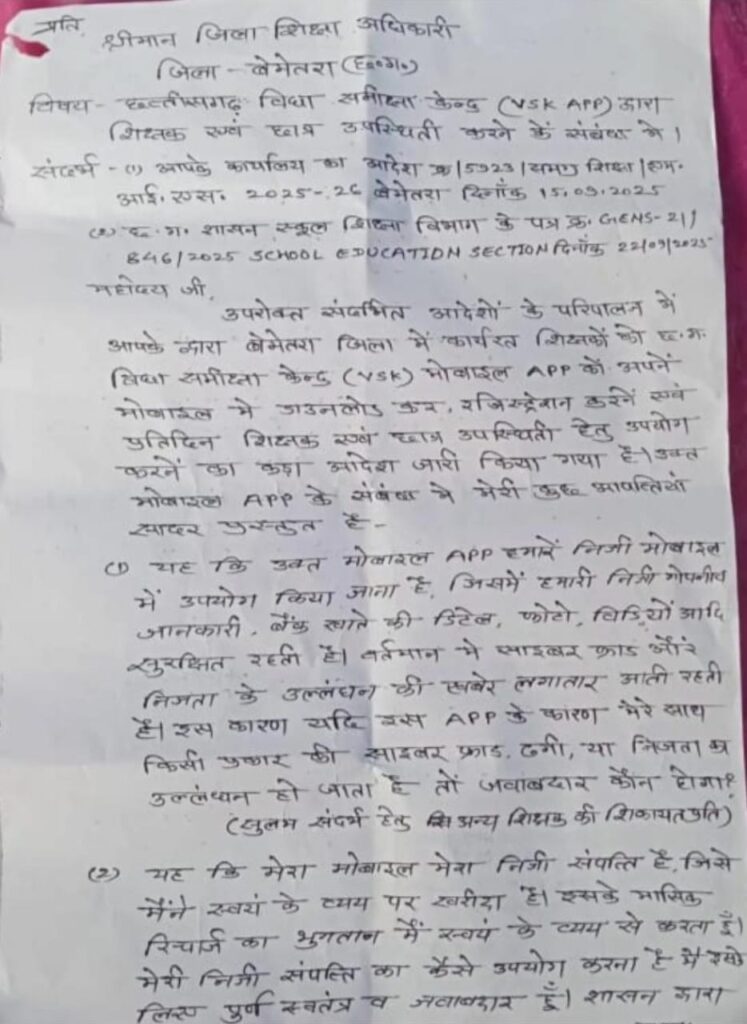 प्रति,
श्रीमान जिला शिक्षा अधिकारी
जिला - बेमेतरा (छ०ग०)
विषय - छत्तीसगढ़ विधा समीक्षा केन्द्र (VSK APP) द्वारा
शिक्षक एवं छात्र उपस्थिती करने के संबंध में।
संदर्भ - (1) आपके कार्यालय का आदेश क्र/5923/समग्र शिक्षा/एम.
आई.एस. 2025-26 बेमेतरा दिनाँक 15.09.2025
(2) छ.ग. शासन स्कूल शिक्षा विभाग के पत्र क्र. GENS-21/
846/2025 SCHOOL EDUCATION SECTION दिनाँक 22/09/2025
महोदय जी,
उपरोक्त संदर्भित आदेशों के परिपालन में
आपके द्वारा बेमेतरा जिला में कार्यरत शिक्षकों को छ.ग.
विधा समीक्षा केन्द्र (VSK) मोबाइल APP को अपनें
मोबाइल में डाउनलोड कर, रजिस्ट्रेशन करनें एवं
प्रतिदिन शिक्षक एवं छात्र उपस्थिती हेतु उपयोग
करनें का कड़ा आदेश जारी किया गया है। उक्त
मोबाइल APP के संबंध में मेरी कुछ आपत्तियाँ
सादर प्रस्तुत है -
(1) यह कि उक्त मोबाइल APP हमारें निजी मोबाइल
में उपयोग किया जाना है, जिसमें हमारी निजी गोपनीय
जानकारी, बैंक खाते की डिटेल, फोटो, विडियों आदि
सुरक्षित रहती है। वर्तमान में साइबर फ्राड और
निजता के उल्लंघन की खबरे लगातार आती रहती
है। इस कारण यदि इस APP के कारण मेरे साथ
किसी प्रकार की साइबर फ्राड, ठगी, या निजता का
उल्लंघन हो जाता है तो जवाबदार कौन होगा?
(सुलभ संदर्भ हेतु अन्य शिक्षक की शिकायत प्रति)
(2) यह कि मेरा मोबाइल मेरा निजी संपत्ति है, जिसे
मैंने स्वयं के व्यय पर खरीदा है। इसके मासिक
रिचार्ज का भुगतान मैं स्वयं के व्यय से करता हूँ।
मेरी निजी संपत्ति का कैसे उपयोग करना है मैं इसके
लिए पुर्ण स्वतंत्र व जवाबदार हूँ। शासन द्वारा